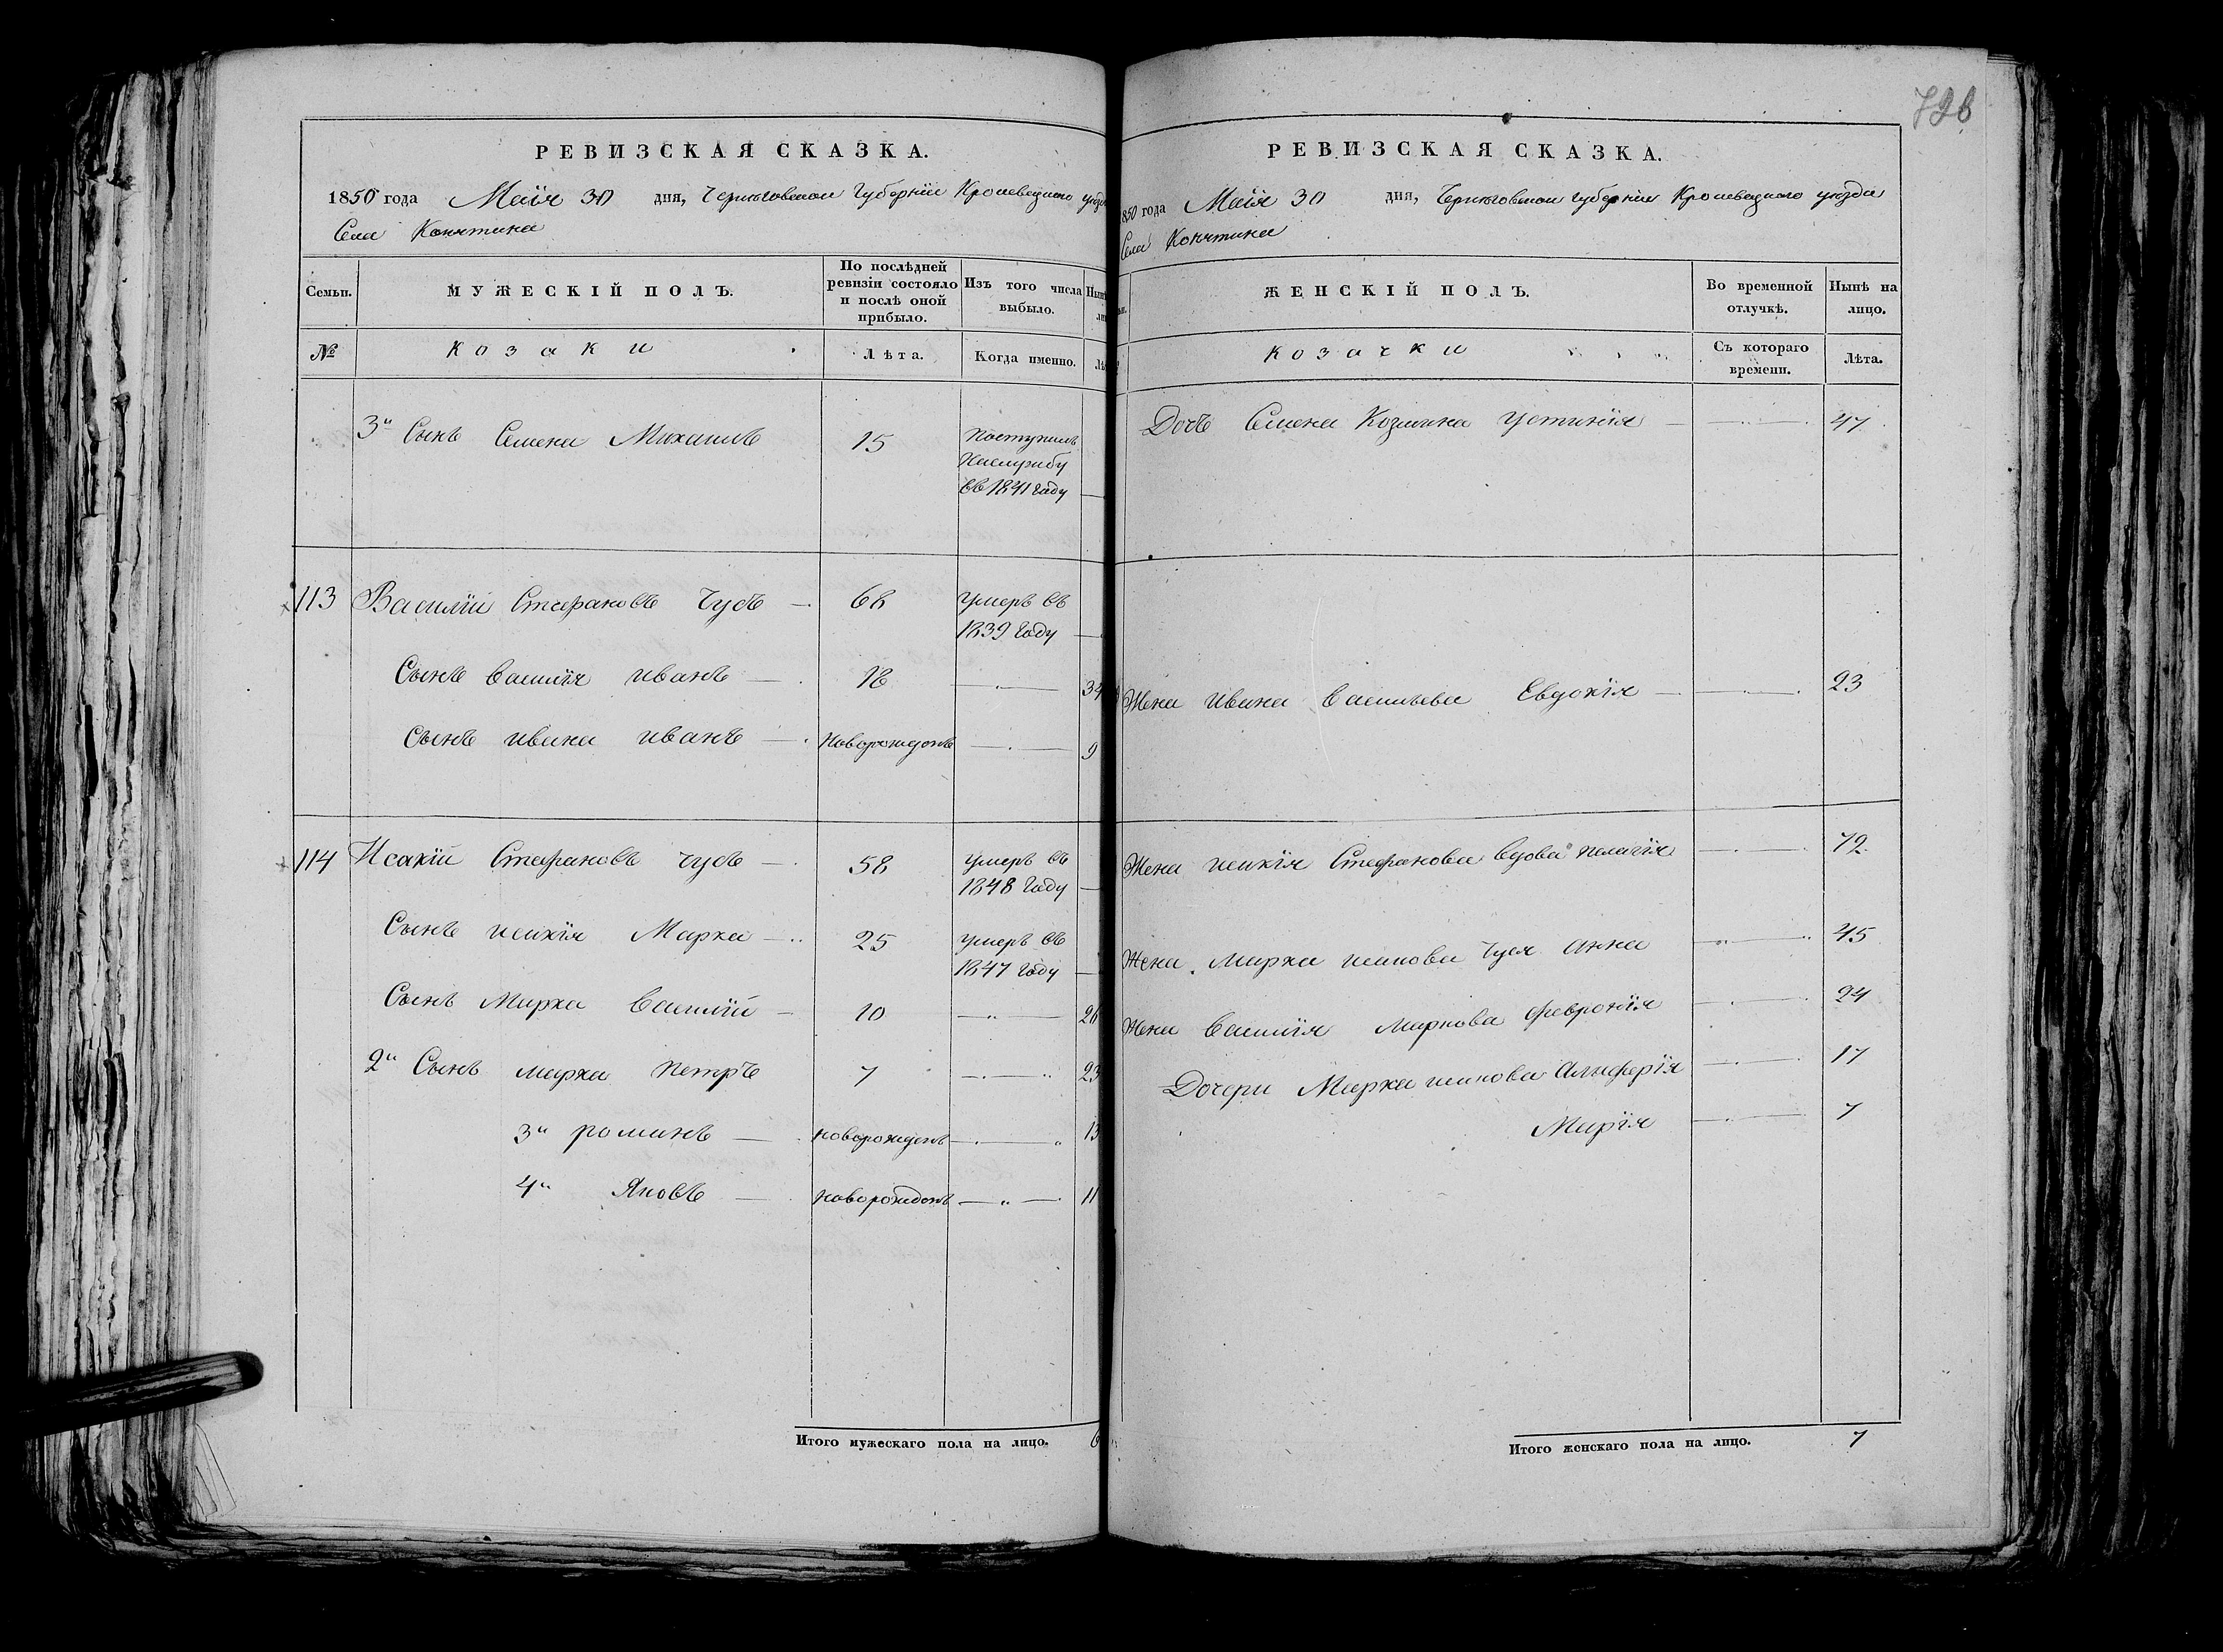 726
РЕВИЗСКАЯ СКАЗКА.
1850 года Маія 30 дня, Черниговской Губерніи Кролевецкаго уезда
Села Конятина
Семьи. МУЖЕСКІЙ ПОЛЪ. По послѣдней ревизіи состояло и послѣ оной прибыло. Изъ того числа выбыло.
№ Козаки Лѣта. Когда именно.
3й Сынъ Семена Михаилъ 15 Поступилъ
на службу
въ 1841 году
113 Василій Стефановъ Чубъ 68 умеръ въ
1839 году
Сынъ василія иванъ 18 34
Сынъ ивана иванъ новорожденъ 9
114 Исакій Стефановъ Чубъ 58 умеръ въ
1848 году
Сынъ исакія Марка 25 умеръ въ
1847 году
Сынъ Марка василій 10 26
2й Сынъ марка петръ 7 23
3й романъ новорожденъ 13
4й Яковъ новорожденъ 11
Итого мужескаго пола на лицо. 6
РЕВИЗСКАЯ СКАЗКА.
850 года Маія 30 дня, Черниговской губерніи Кролевецкаго уезда
Села Конятина
ЖЕНСКІЙ ПОЛЪ. Во временной отлучкѣ. Нынѣ на лицо.
козачки Съ котораго времени. Лѣта.
Дочь Семена Козмина устинія 47
Жена ивана васильева Евдокія 23
Жена исакія Стефанова вдова пелагія 72
Жена Марка исакова Чуба анна 45
Жена василія Маркова февронія 24
Дочери Марка исакова 17
Марія 7
Итого женскаго пола на лицо. 7